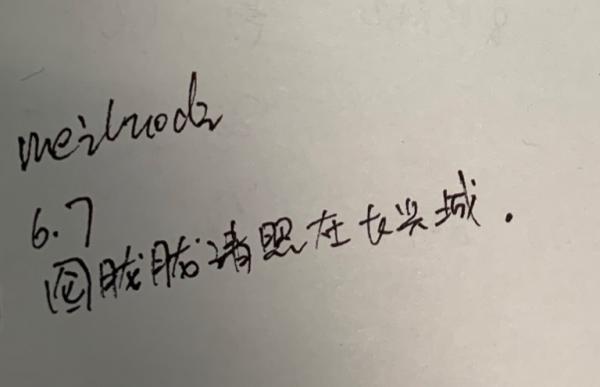 meiluoda
6.7
图胧胧请照在长兴城.